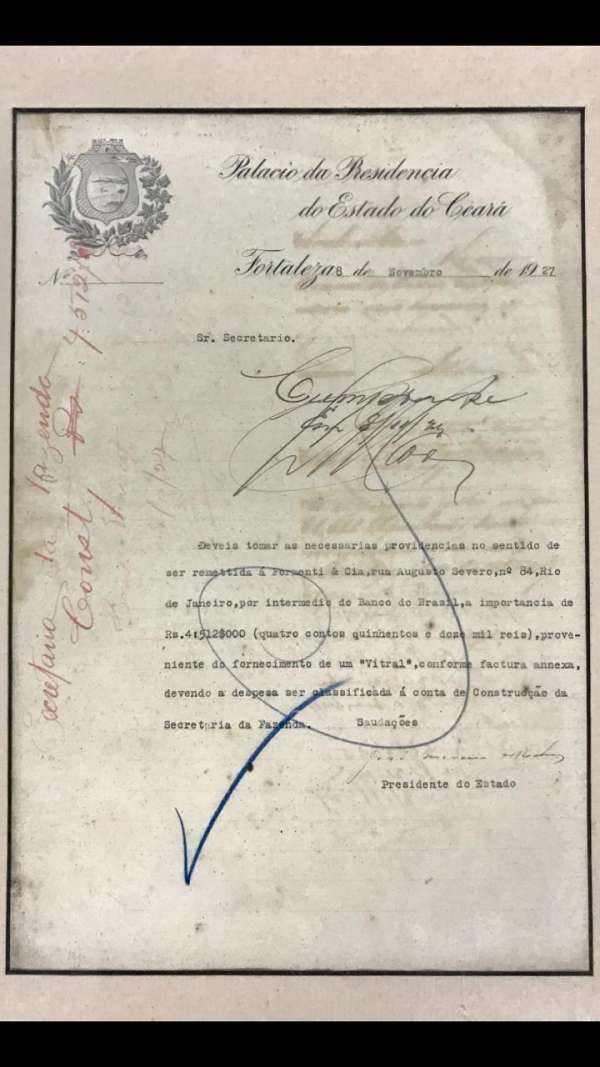 Palacio da Presidencia
do Estado do Ceará
Fortaleza 8 de Novembro de 1927
Nº
Sr. Secretario.
Cumpra-se
Deveis tomar as necessarias providencias no sentido de
ser remettida á Formenti & Cia, rua Augusto Severo, nº 84, Rio
de Janeiro, por intermedio do Banco do Brasil, a importancia de
Rs.4:512$000 (quatro contos quinhentos e doze mil reis), prove-
niente do fornecimento de um "Vitral", conforme factura annexa,
devendo a despesa ser classificada á conta de Construcção da
Secretaria da Fazenda. Saudações
Presidente do Estado
Secretaria da Fazenda
Const